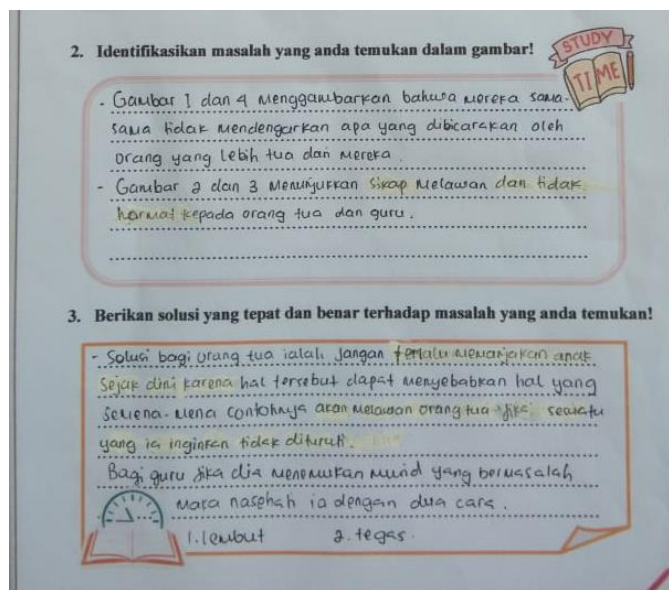 2. Identifikasikan masalah yang anda temukan dalam gambar!
STUDY
TIME
- Gambar 1 dan 4 menggambarkan bahwa mereka sama-
sama tidak mendengarkan apa yang dibicarakan oleh
orang yang lebih tua dari mereka.
- Gambar 2 dan 3 menunjukkan sikap melawan dan tidak
hormat kepada orang tua dan guru.
3. Berikan solusi yang tepat dan benar terhadap masalah yang anda temukan!
- Solusi bagi orang tua ialah jangan terlalu memanjakan anak
sejak dini karena hal tersebut dapat menyebabkan hal yang
semena-mena contohnya akan melawan orang tua jika sesuatu
yang ia inginkan tidak dituruti.
Bagi guru jika dia menemukan murid yang bermasalah
maka nasehah ia dengan dua cara.
1. lembut 2. tegas.